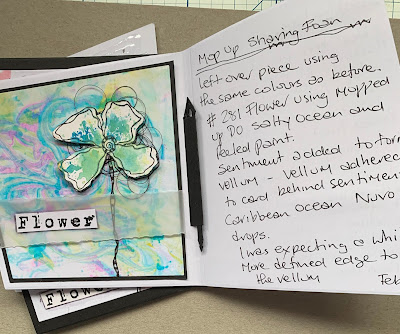 Mop Up Shaving Foam
left over piece using
the same colours as before.
# 281 Flower using Mopped
up DO Salty Ocean and
peeled paint.
Sentiment added to torn
vellum - vellum adhered
to card behind sentiment
Caribbean Ocean Nuvo
drops.
I was expecting a
More defined edge to
the vellum
Flower
Flower